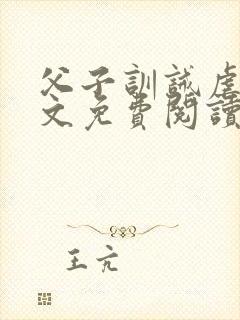 父子訓誡虐
文免費閱讀
王亢